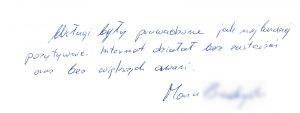 Usługi były prowadzone jak najbardziej
pozytywnie. Internet działał bez zastrzeżeń
oraz bez większych awarii.
Maria